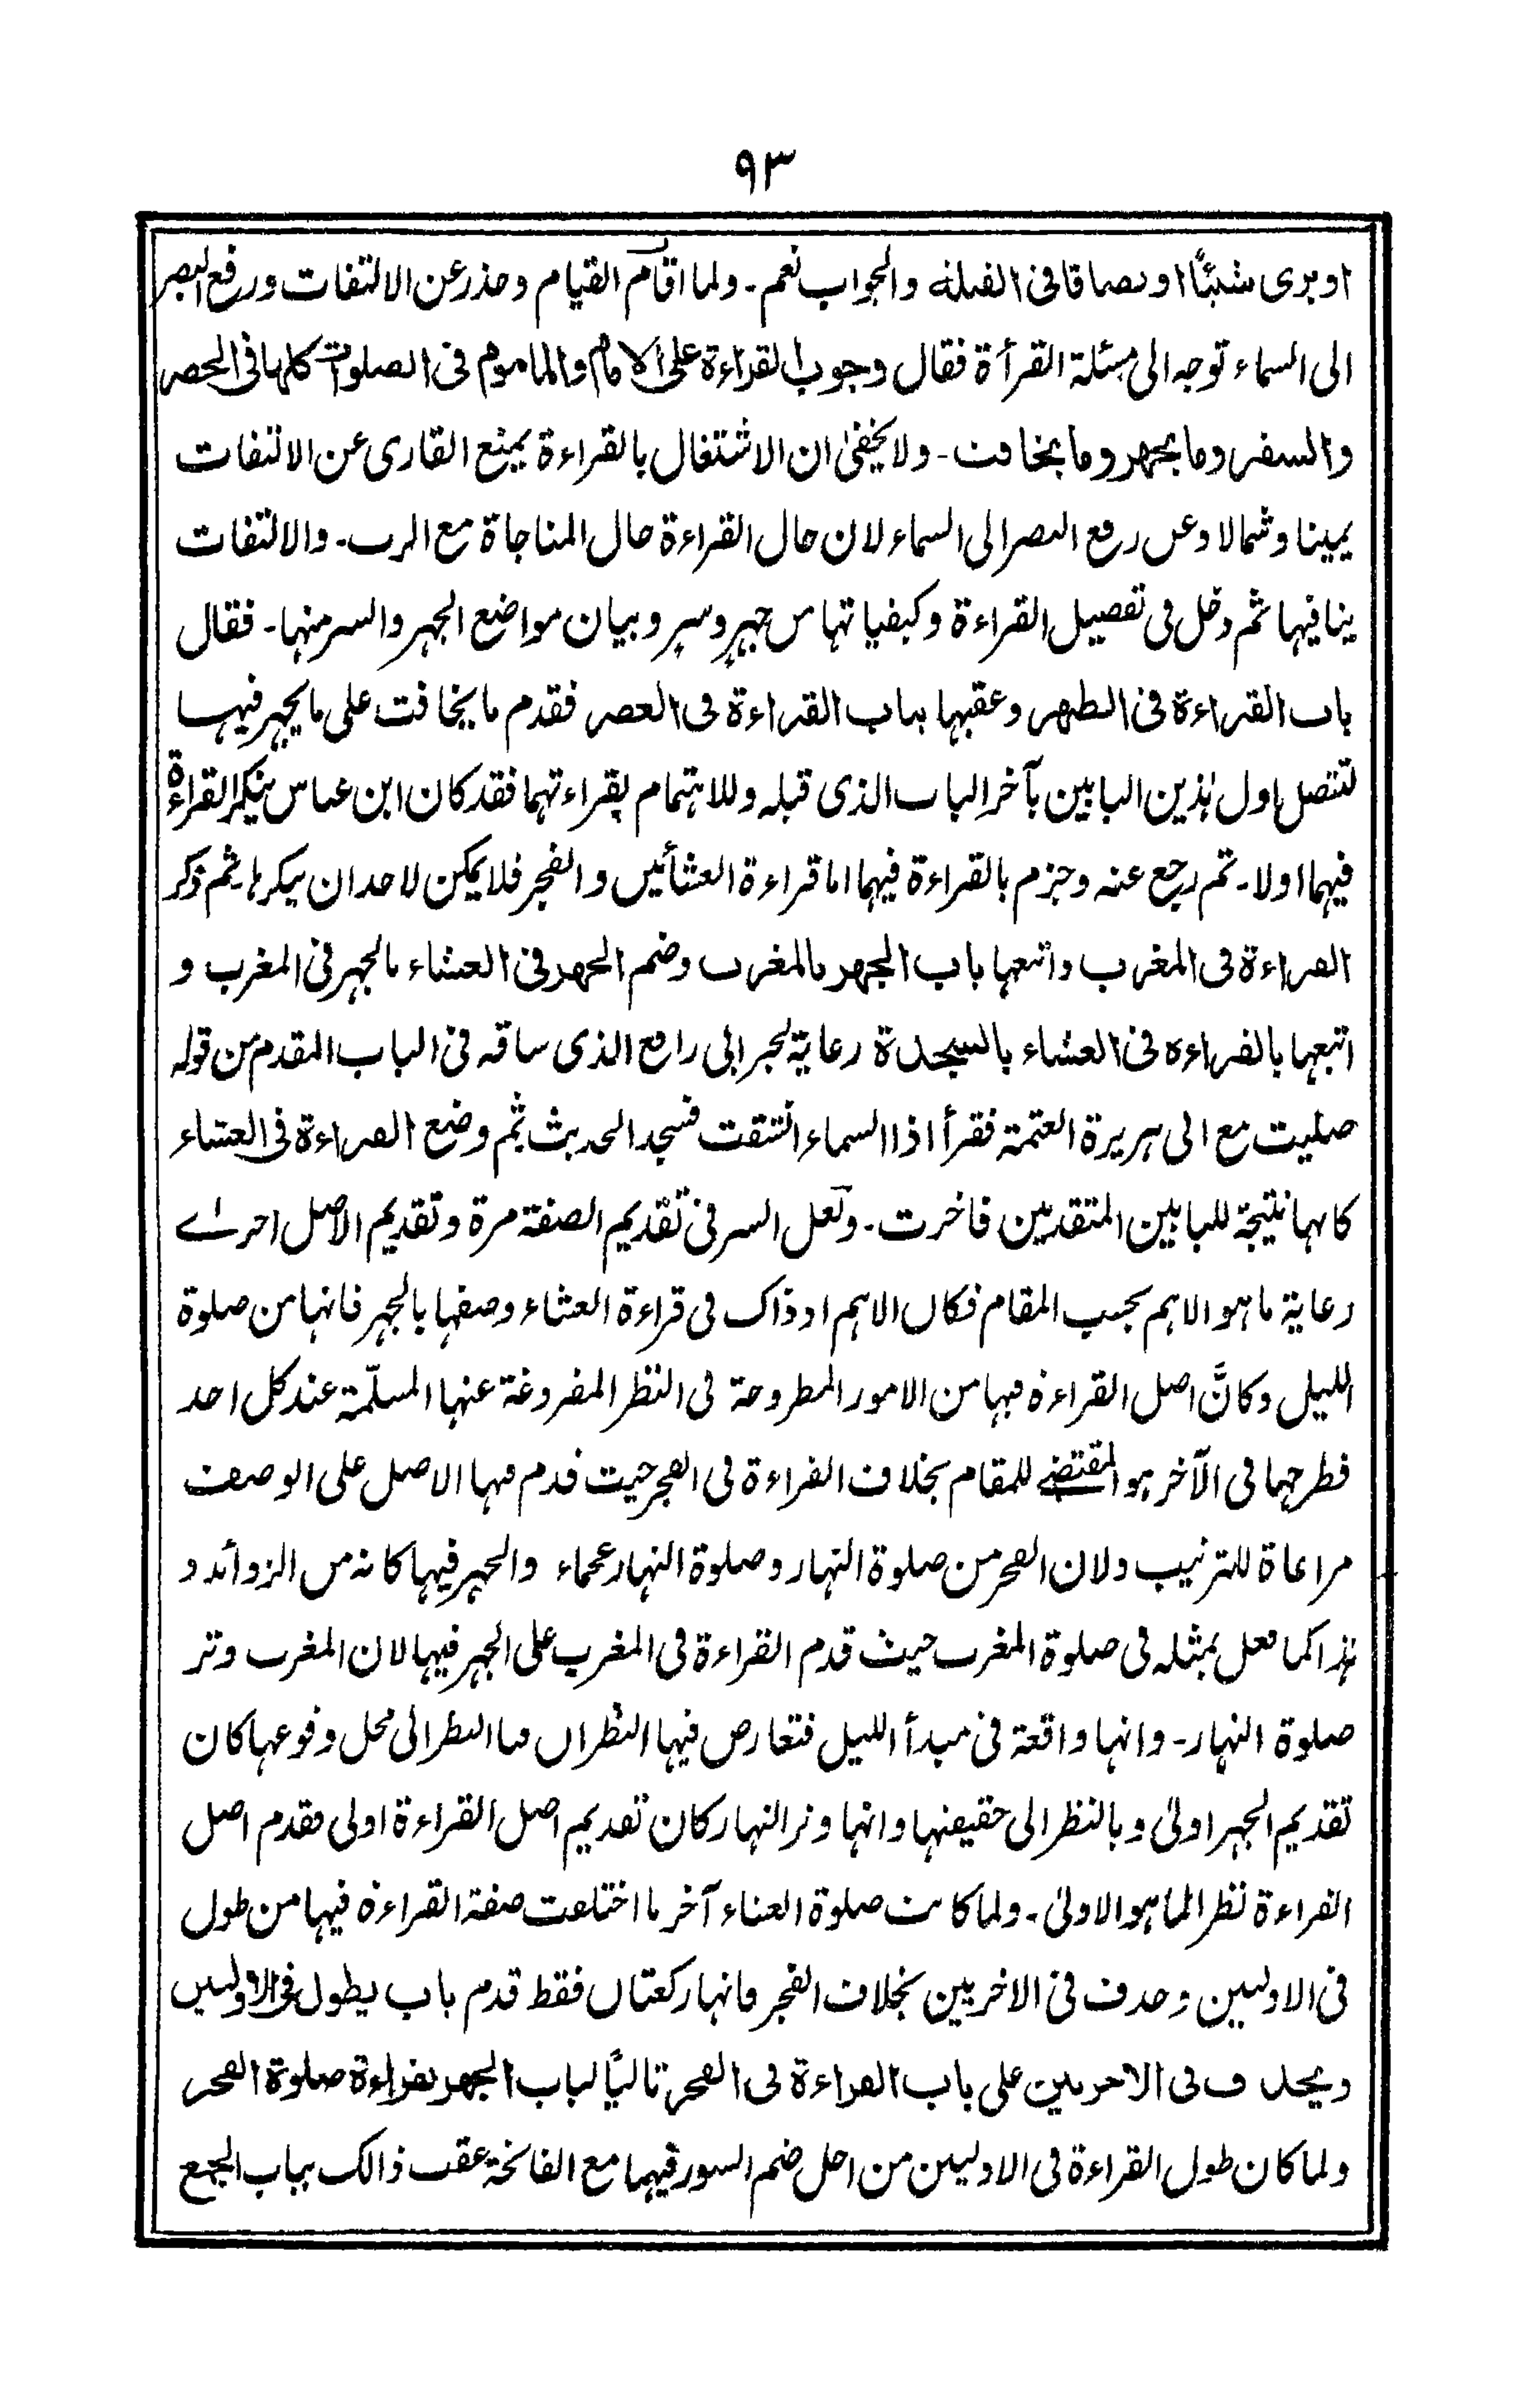 ٩٣
او يرى شيئًا او بصاقا فى القبلة والجواب نعم ـ ولما اقام القيام وحذر عن الالتفات ورفع البصر
الى السماء توجه الى مسئلة القرأة فقال وجوب القراءة على الامام والماموم فى الصلوات كلها فى الحضر
والسفر وما يجهر وما يخافت ـ ولا يخفى ان الاشتغال بالقراءة يمنع القارى عن الالتفات
يمينا وشمالا وعن رفع البصر الى السماء لان حال القراءة حال المناجاة مع الرب ـ والالتفات
ينافيها ثم دخل فى تفصيل القراءة وكيفياتها من جهر وسر وبيان مواضع الجهر والسر منها ـ فقال
باب القراءة فى الظهر وعقبها بباب القراءة فى العصر فقدم ما يخافت على ما يجهر فيها
لتتصل اول ہذين البابين بآخر الباب الذى قبله وللاهتمام بقراءتهما فقد كان ابن عباس ينكر القراءة
فيهما اولا ـ ثم رجع عنه وجزم بالقراءة فيهما اما قراءة العشائين والفجر فلا يمكن لاحد ان ينكرها ثم ذكر
القراءة فى المغرب واتبعها باب الجهر بالمغرب وضم الجهر فى العشاء بالجهر فى المغرب و
اتبعها بالقراءة فى العشاء بالسجدة رعاية لخبر ابى رافع الذى ساقه فى الباب المقدم من قوله
صليت مع ابى هريرة العتمة فقرأ اذا السماء انشقت فسجد الحديث ثم وضع القراءة فى العشاء
كانها نتيجة للبابين المتقدمين فاخرت ـ ولعل السر فى تقديم الصفة مرة وتقديم الاصل اخرىٰ
رعاية ما هو الاهم بحسب المقام فكان الاهم اذ ذاك فى قراءة العشاء وصفها بالجهر فانها من صلوة
الليل وكانَّ اصل القراءة فيها من الامور المطروحة فى النظر المفروغة عنها المسلّمة عند كل احد
فطرحها فى الآخر هو المقتضى للمقام بخلاف القراءة فى الفجر حيث قدم فيها الاصل على الوصف
مراعاة للترتيب ولان الفجر من صلوة النهار وصلوة النهار عجماء والجهر فيها كانه من الزوائد و
ہذا كما فعل بمثله فى صلوة المغرب حيث قدم القراءة فى المغرب على الجهر فيها لان المغرب وتر
صلوة النهار ـ وانها واقعة فى مبدأ الليل فتعارض فيها النظران فبالنظر الى محل وقوعها كان
تقديم الجهر اولىٰ وبالنظر الى حقيقتها وانها وتر النهار كان تقديم اصل القراءة اولى فقدم اصل
القراءة نظر الما هو الاولىٰ ـ ولما كانت صلوة العشاء آخر ما اختلفت صفة القراءة فيها من طول
فى الاوليين وحذف فى الاخريين بخلاف الفجر فانها ركعتان فقط قدم باب يطول فى الاوليين
ويحذف فى الاخريين على باب القراءة فى الفجر تاليًا لباب الجهر بقراءة صلوة الفجر
ولما كان طول القراءة فى الاوليين من اجل ضم السور فيهما مع الفاتحة عقب ذالك بباب الجمع